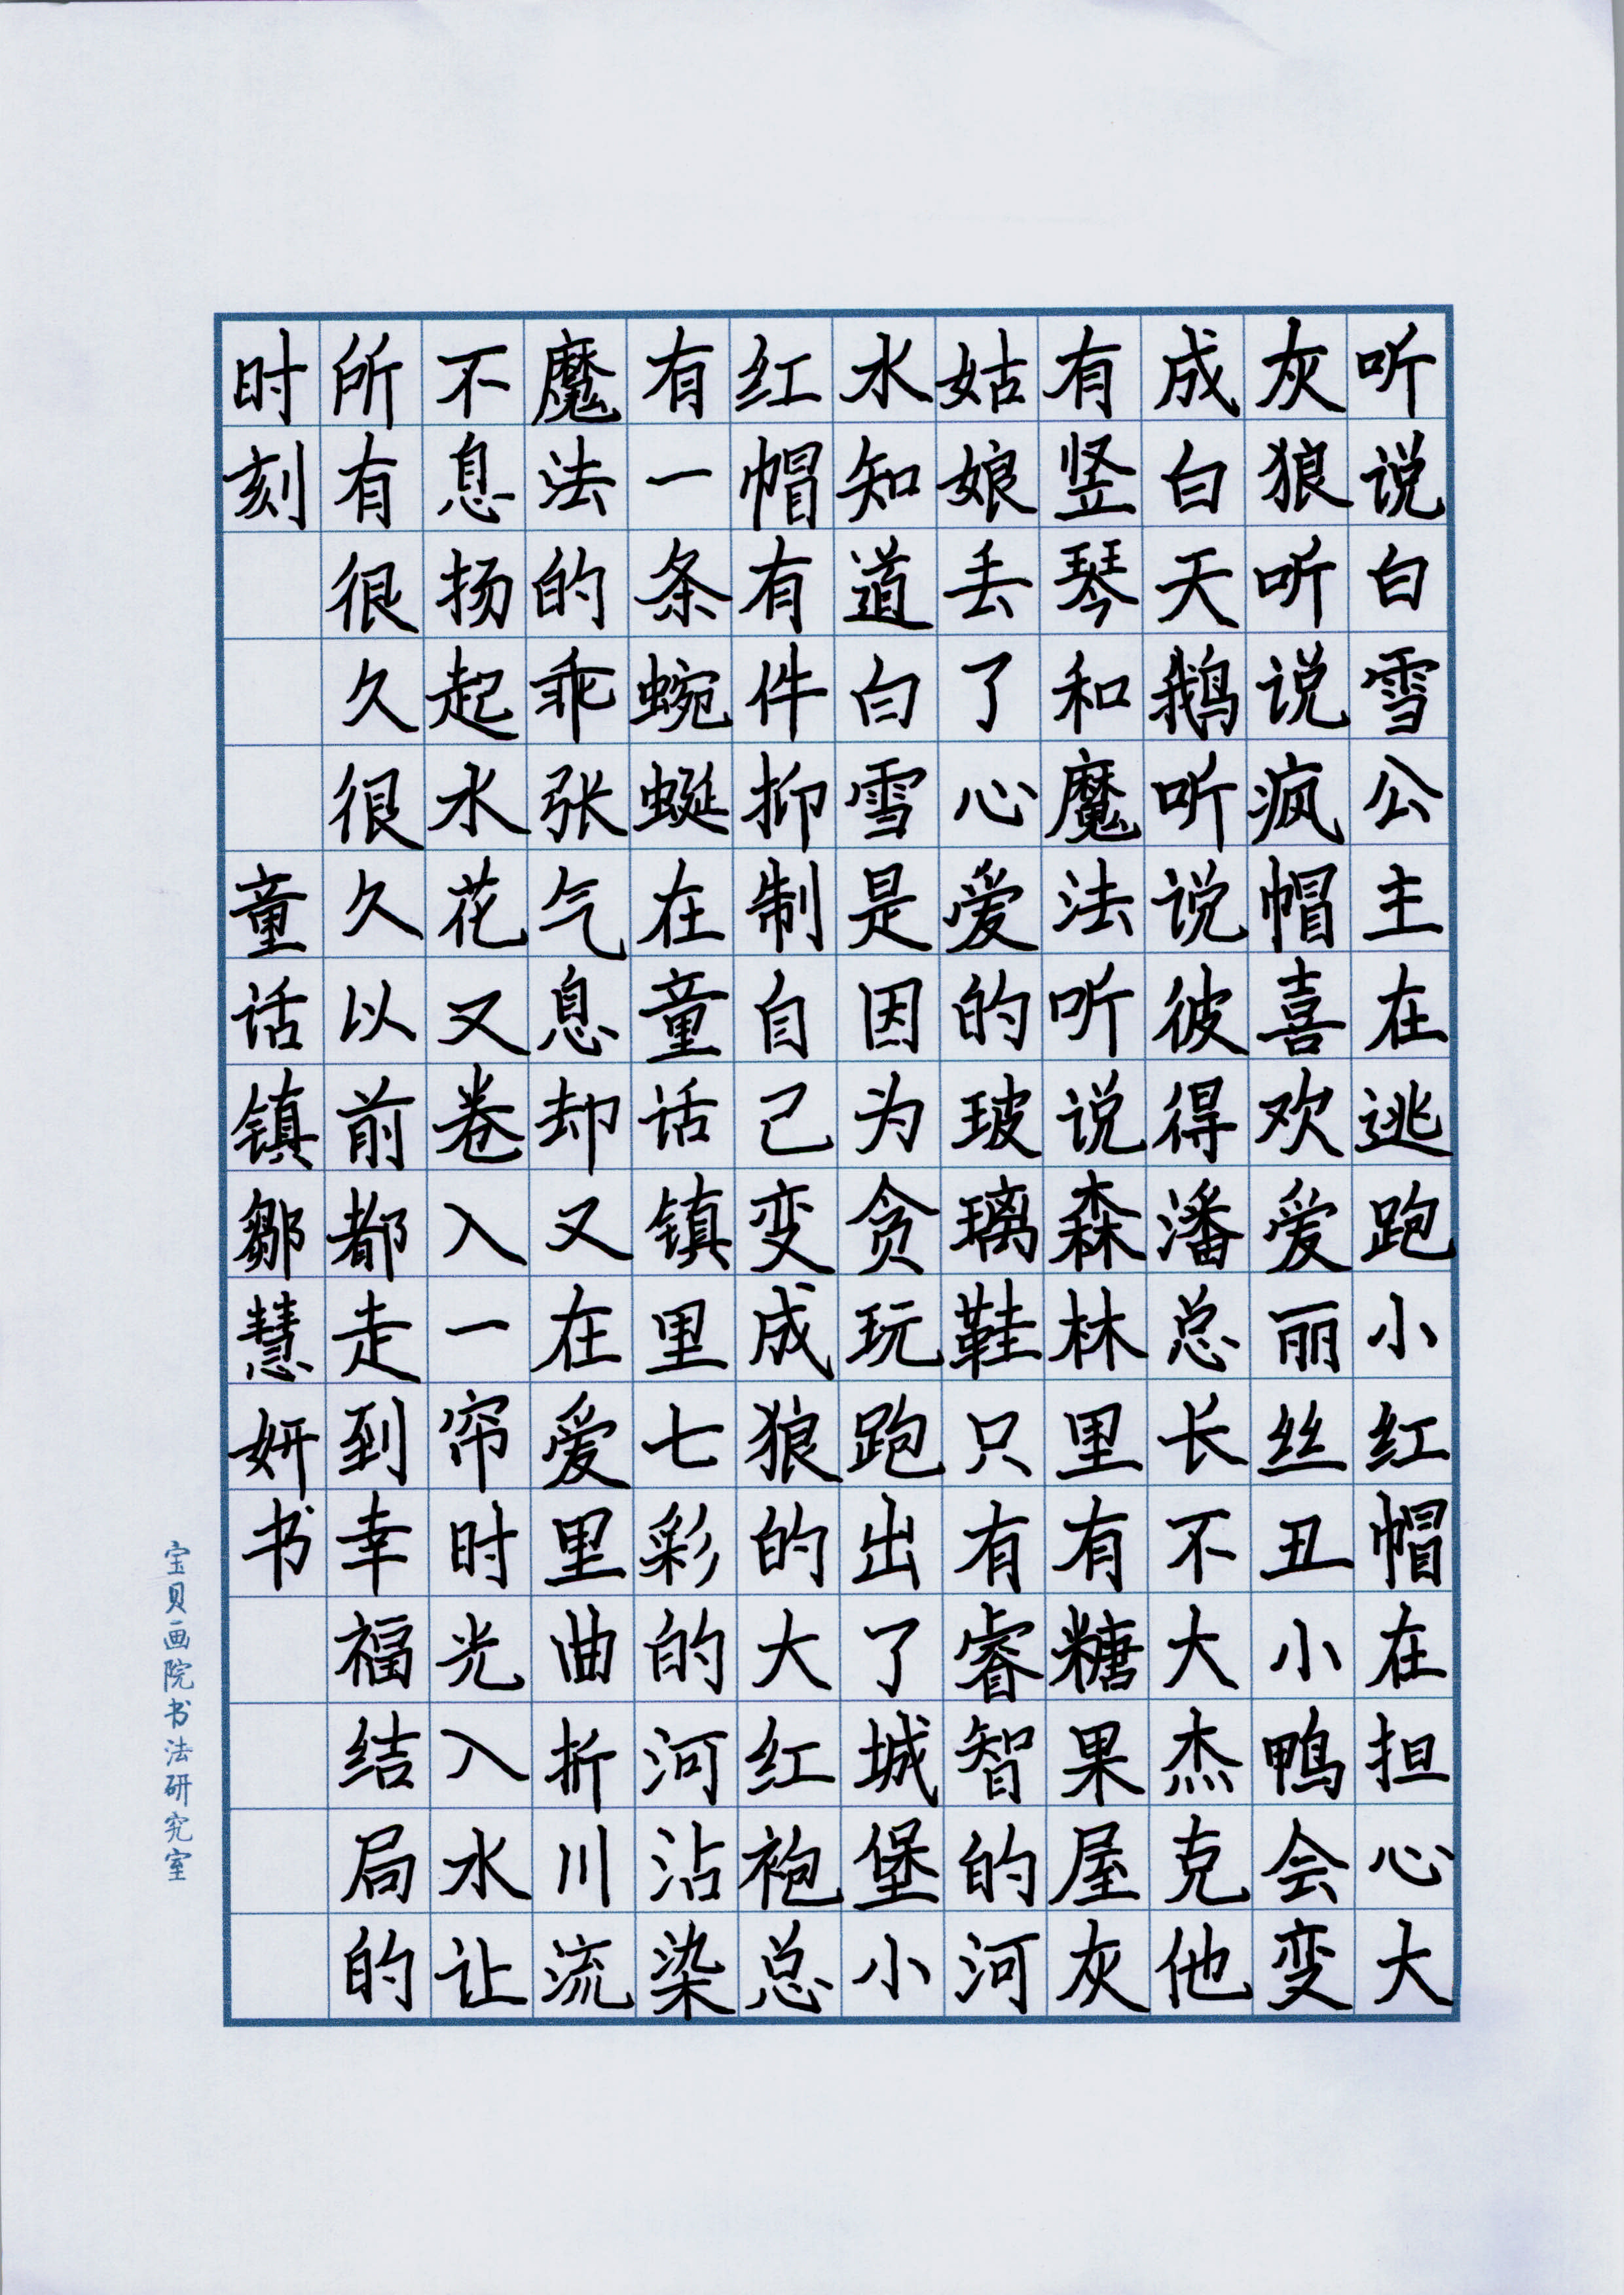 听说白雪公主在逃跑小红帽在担心大
灰狼听说疯帽喜欢爱丽丝丑小鸭会变
成白天鹅听说彼得潘总长不大杰克他
有竖琴和魔法听说森林里有糖果屋灰
姑娘丢了心爱的玻璃鞋只有睿智的河
水知道白雪是因为贪玩跑出了城堡小
红帽有件抑制自己变成狼的大红袍总
有一条蜿蜒在童话镇里七彩的河沾染
魔法的乖张气息却又在爱里曲折川流
不息扬起水花又卷入一帘时光入水让
所有很久很久以前都走到幸福结局的
时刻 童话镇邹慧妍书
宝贝画院书法研究室